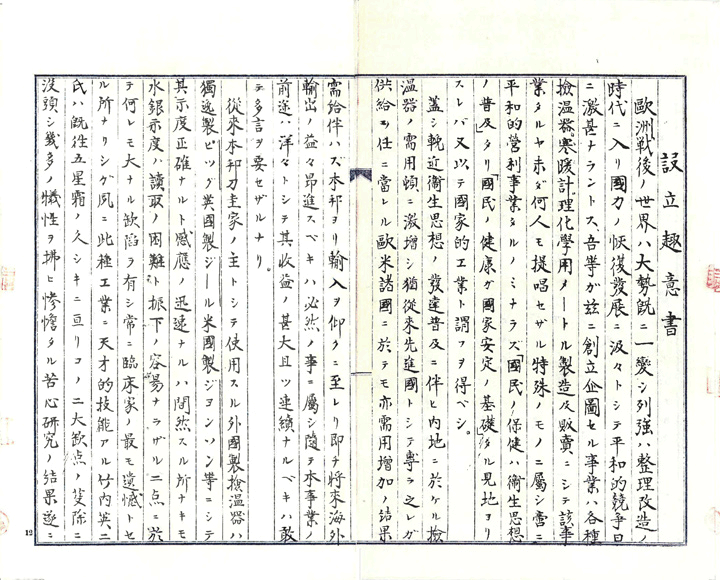 設立趣意書
歐洲戰後ノ世界ハ大勢旣ニ一變シ列强ハ整理改造ノ
時代ニ入リ國力ノ恢復發展ニ汲々トシテ平和的競爭日
ニ激甚ナラントス、吾等ガ玆ニ創立企圖セル事業ハ各種
檢溫器、寒暖計理化學用メートル製造及販賣ニシテ該事
業タルヤ未ダ何人モ提唱セザル特殊ノモノニ屬シ啻ニ
平和的營利事業タルノミナラズ「國民ノ保健ハ衞生思想
ノ普及」タリ「國民ノ健康ガ國家安定ノ基礎」タル見地ヨリ
スレバ又以テ國家的工業ト謂フヲ得ベシ。
蓋シ輓近衞生思想ノ發達普及ニ伴ヒ內地ニ於ケル檢
溫器ノ需用頓ニ激增シ猶從來先進國トシテ專ラ之レガ
供給ノ任ニ當レル歐米諸國ニ於テモ亦需用增加ノ結果
需給伴ハズ本邦ヨリ輸入ヲ仰グニ至レリ卽チ將來海外
輸出ノ益々昂進スベキハ必然ノ事ニ屬シ隨テ本事業ノ
前途ハ洋々トシテ其收益ノ甚大且ツ連續ナルベキハ敢
テ多言ヲ要セザルナリ。
從來本邦刀圭家ノ主トシテ使用スル外國製檢溫器ハ
獨逸製ビツグ英國製ジール米國製ジヨンソン等ニシテ
其示度正確ナルト感應ノ迅速ナルハ間然スル所ナキモ
水銀示度ハ讀取ノ困難ト振下ノ容易ナラザル二点ニ於
テ何レモ大ナル缺陷ヲ有シ常ニ臨床家ノ最モ遺憾トセ
ル所ナリシガ夙ニ此種工業ニ天才的技能アル竹內英二
氏ハ旣往五星霜ノ久シキニ亘リコノ二大缺点ノ芟除ニ
沒頭シ幾多ノ犧牲ヲ拂ヒ慘憺タル苦心硏究ノ結果遂ニ
12